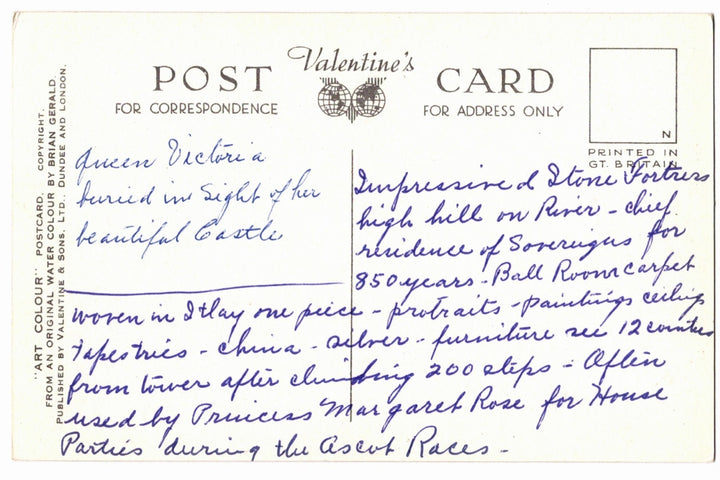 Valentine's
POST CARD
FOR CORRESPONDENCE
FOR ADDRESS ONLY
N
PRINTED IN
GT. BRITAIN
"ART COLOUR" POSTCARD. COPYRIGHT.
FROM AN ORIGINAL WATER COLOUR BY BRIAN GERALD.
PUBLISHED BY VALENTINE & SONS, LTD., DUNDEE AND LONDON.
Queen Victoria
buried in Sight of her
beautiful Castle
Impressive Stone Fortress
high hill on River - chief
residence of Sovereigns for
850 years - Ball Room carpet
woven in Itlay one piece - protraits - paintings ceilings
Tapestries - china - silver - furniture see 12 counties
from tower after climbing 200 steps - Often
used by Princess Margaret Rose for House
Parties during the Ascot Races -